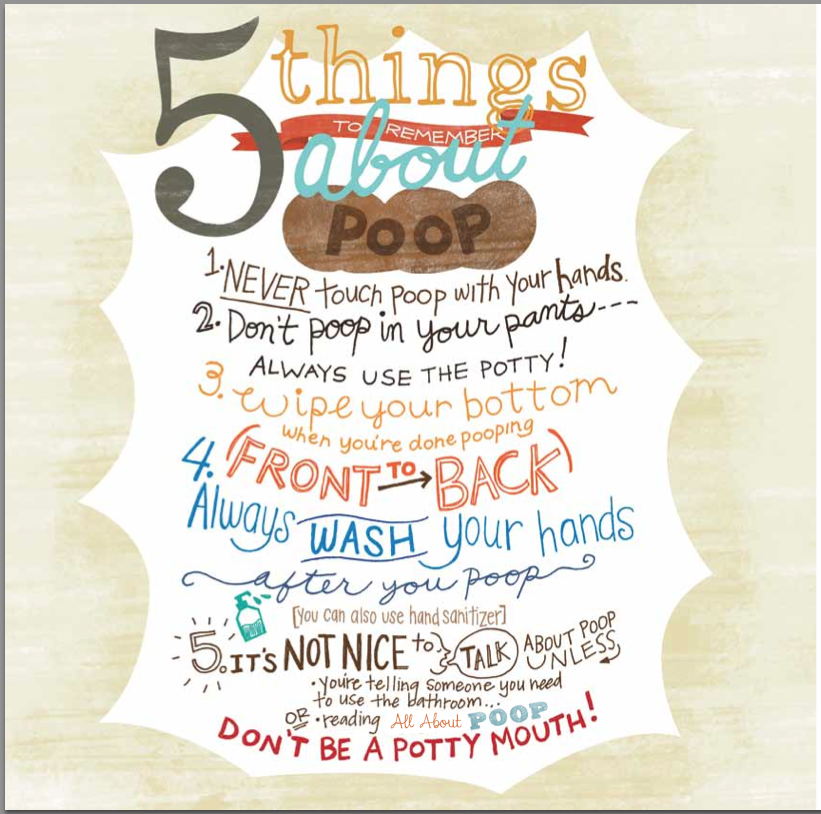 5 things
TO REMEMBER
about
POOP
1. NEVER touch poop with your hands.
2. Don't poop in your pants---
ALWAYS USE THE POTTY!
3. wipe your bottom
when you're done pooping
(FRONT TO → BACK)
4. Always WASH your hands
after you poop
[you can also use hand sanitizer]
5. IT'S NOT NICE to TALK ABOUT POOP UNLESS
• You're telling someone you need
to use the bathroom...
OR • reading All About POOP
DON'T BE A POTTY MOUTH!